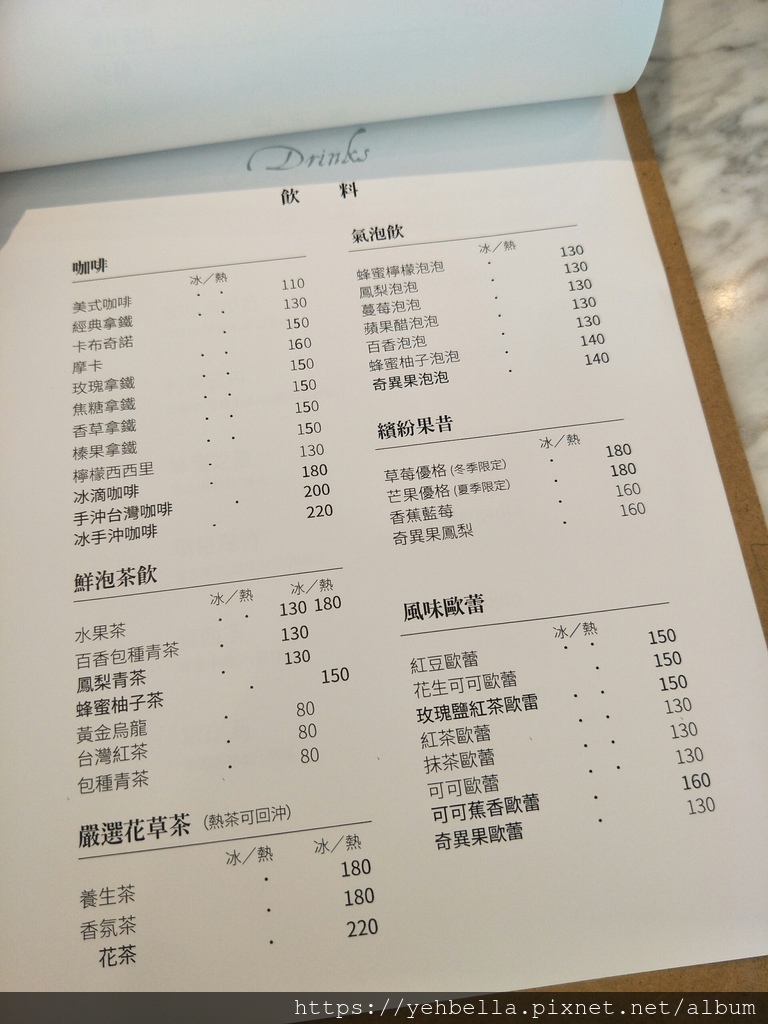 Drinks
飲 料
咖啡
冰／熱
美式咖啡 110
經典拿鐵 130
卡布奇諾 150
摩卡 160
玫瑰拿鐵 150
焦糖拿鐵 150
香草拿鐵 150
榛果拿鐵 150
檸檬西西里 130
冰滴咖啡 180
手沖台灣咖啡 200
冰手沖咖啡 220
鮮泡茶飲
冰／熱 冰／熱
水果茶 130 180
百香包種青茶 130
鳳梨青茶 130
蜂蜜柚子茶 150
黃金烏龍 80
台灣紅茶 80
包種青茶 80
嚴選花草茶 (熱茶可回沖)
冰／熱 冰／熱
養生茶 180
香氛茶 180
花茶 220
氣泡飲
冰／熱
蜂蜜檸檬泡泡 130
鳳梨泡泡 130
蔓莓泡泡 130
蘋果醋泡泡 130
百香泡泡 130
蜂蜜柚子泡泡 140
奇異果泡泡 140
繽紛果昔
冰／熱
草莓優格 (冬季限定) 180
芒果優格 (夏季限定) 180
香蕉藍莓 160
奇異果鳳梨 160
風味歐蕾
冰／熱
紅豆歐蕾 150
花生可可歐蕾 150
玫瑰鹽紅茶歐雷 150
紅茶歐蕾 130
抹茶歐蕾 130
可可歐蕾 130
可可蕉香歐蕾 160
奇異果歐蕾 130
https://yehbella.pixnet.net/album